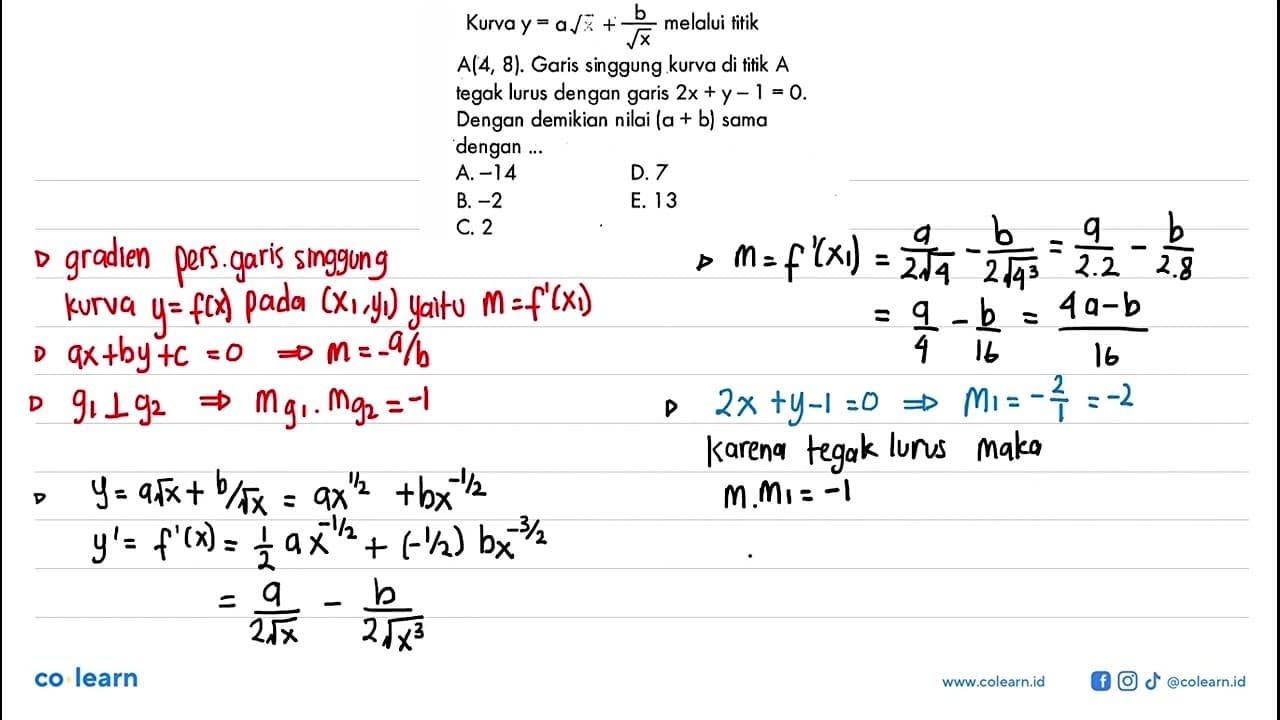 Kurva y = a√x + b/√x melalui titik
A(4, 8). Garis singgung kurva di titik A
tegak lurus dengan garis 2x + y – 1 = 0.
Dengan demikian nilai (a + b) sama
dengan ...
A. –14 D. 7
B. –2 E. 13
C. 2
▷ gradien pers. garis singgung
kurva y = f(x) pada (x₁, y₁) yaitu m = f'(x₁)
▷ ax + by + c = 0 ⇒ m = -a/b
▷ g₁ ⊥ g₂ ⇒ m g₁ . m g₂ = -1
▷ y = a√x + b/√x = ax^1/2 + bx^-1/2
y' = f'(x) = 1/2 a x^-1/2 + (-1/2) bx^-3/2
= a/2√x - b/2√x³
▷ m = f'(x₁) = a/2√4 - b/2√4³ = a/2.2 - b/2.8
= a/4 - b/16 = 4a-b/16
▷ 2x + y - 1 = 0 ⇒ m₁ = -2/1 = -2
Karena tegak lurus maka
m . m₁ = -1
co learn
www.colearn.id @colearn.id